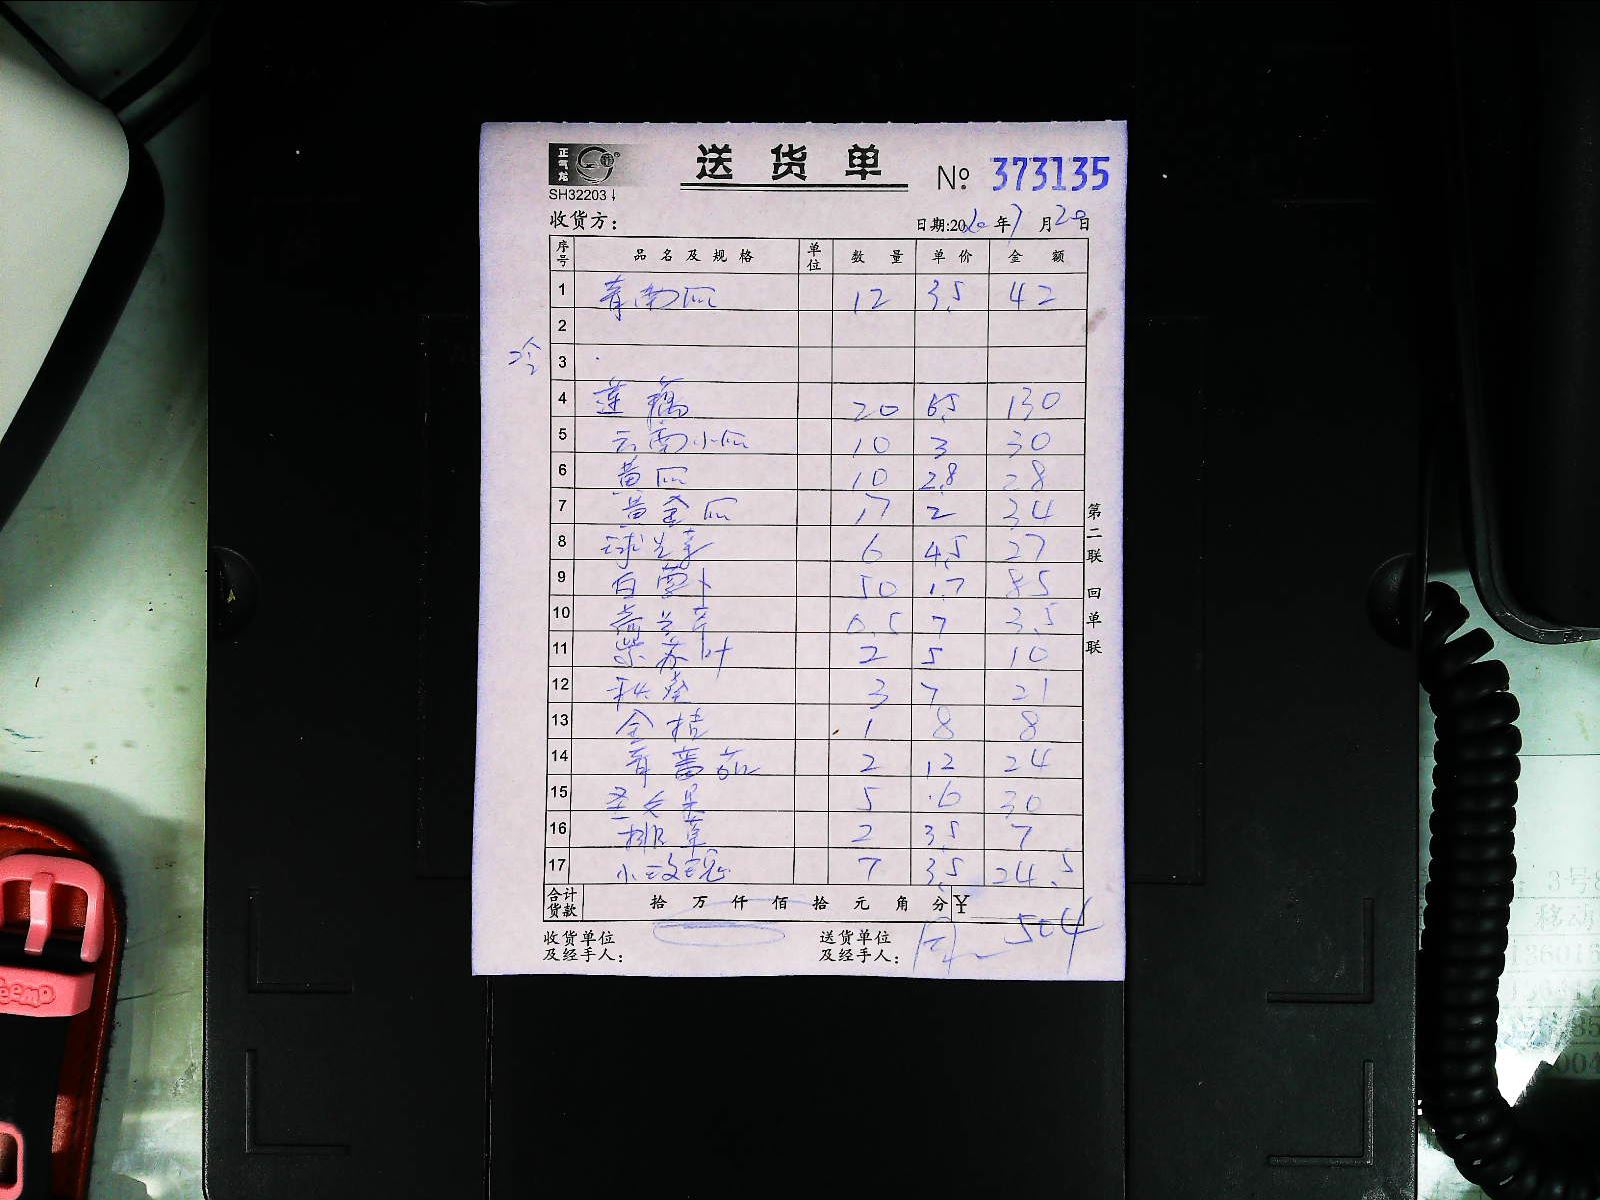 正气龙
送货单
№ 373135
SH32203
收货方：
日期:2020年7月28日
序号 品名及规格 单位 数量 单价 金额
1 青南瓜 12 3.5 42
2
冷
3
4 莲藕 20 6.5 130
5 云南小瓜 10 3 30
6 黄瓜 10 2.8 28
7 黄金瓜 17 2 34
8 球生菜 6 4.5 27
9 白萝卜 50 1.7 85
10 0.5 7 3.5
11 紫苏叶 2 5 10
12 秋葵 3 7 21
13 金桔 1 8 8
14 青番茄 2 12 24
15 圣女果 5 6 30
16 排草 2 3.5 7
17 小玫瑰 7 3.5 24.5
合计货款 拾 万 仟 佰 拾 元 角 分 ￥ 504
收货单位及经手人：
送货单位及经手人：
第二联 回单联
eemo
3号
移动